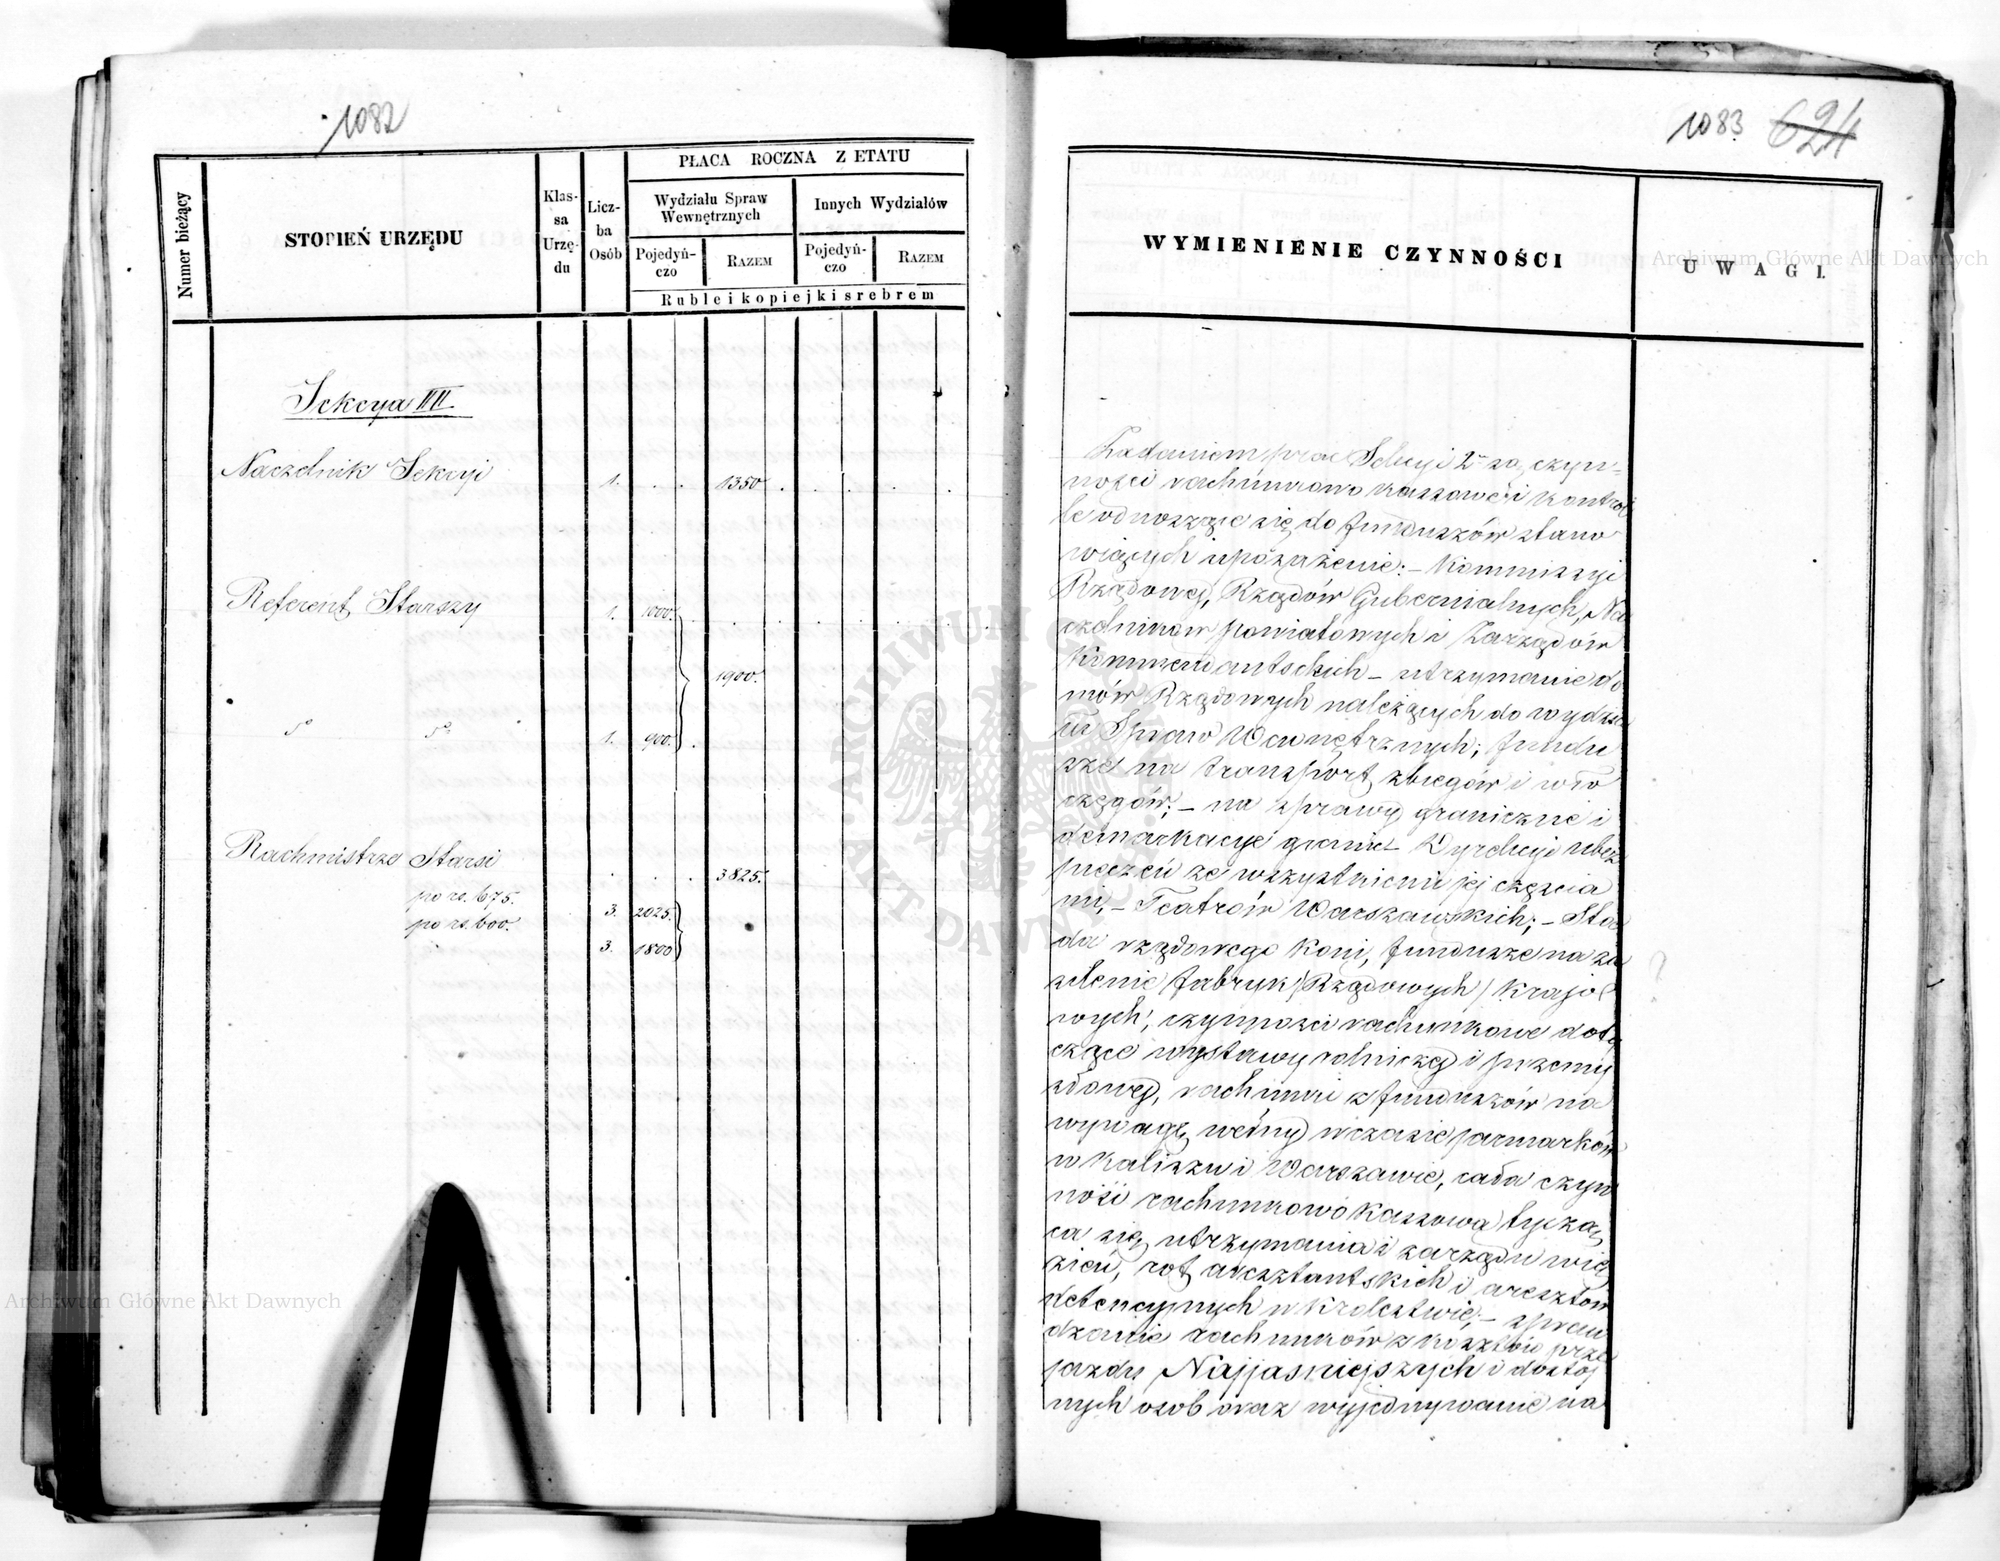 1082
Numer bieżący
STOPIEŃ URZĘDU
Klas-
sa
Urzę-
du
Licz-
ba
Osób
PŁACA ROCZNA Z ETATU
Wydziału Spraw
Wewnętrznych
Innych Wydziałów
Pojedyń-
czo
RAZEM
Pojedyń-
czo
RAZEM
Ruble i kopiejki srebrem
Sekcya III
Naczelnik Sekcyi 1. 1350
Referent Starszy 1. 1000.
1900.
1. 900.
Rachmistrze Starsi 3825.
po rs. 675. 3. 2025.
po rs. 600. 3. 1800
1083 624
WYMIENIENIE CZYNNOŚCI
UWAGI.
Zadaniem prac Sekcyi 2 są czyn-
ności rachunkowo kassowe i kontrol
le odnoszące się do funduszów stano
wiących uposażenie: – Kommissyi
Rządowej, Rządów Gubernialnych, Na
czelników powiatowych i Zarządów
Kommendantskich – utrzymanie do
mów Rządowych należących do wydzia
łu Spraw Wewnętrznych; fundu
sze na transport zbiegów i włó
częgów; – na sprawy graniczne i
demarkacye granic – Dyrekcyi ubez
pieczeń ze wszystkiemi jej częścia
mi, – Teatrów Warszawskich; – Sta
da rządowego koni, fundusze na za
silenie fabryk Rządowych krajo
wych, czynności rachunkowe doty
czące wystawy rolniczej i przemy
słowej, rachunki z funduszów na
wywagę wełny w czasie jarmarków
w Kaliszu i Warszawie, cała czyn
ność rachunkowo kassowa tycząca
ca się utrzymania i zarządu wię
zień, rot aresztantskich i aresztów
detencyjnych w Królestwie; – spraw
dzanie rachunków z kosztów prze
jazdu Najjaśniejszych i dostoj
nych osób oraz wyjednywanie na
?
Archiwum Główne Akt Dawnych
Archiwum Główne Akt Dawnych
ARCHIWUM GŁÓWNE AKT DAWNYCH